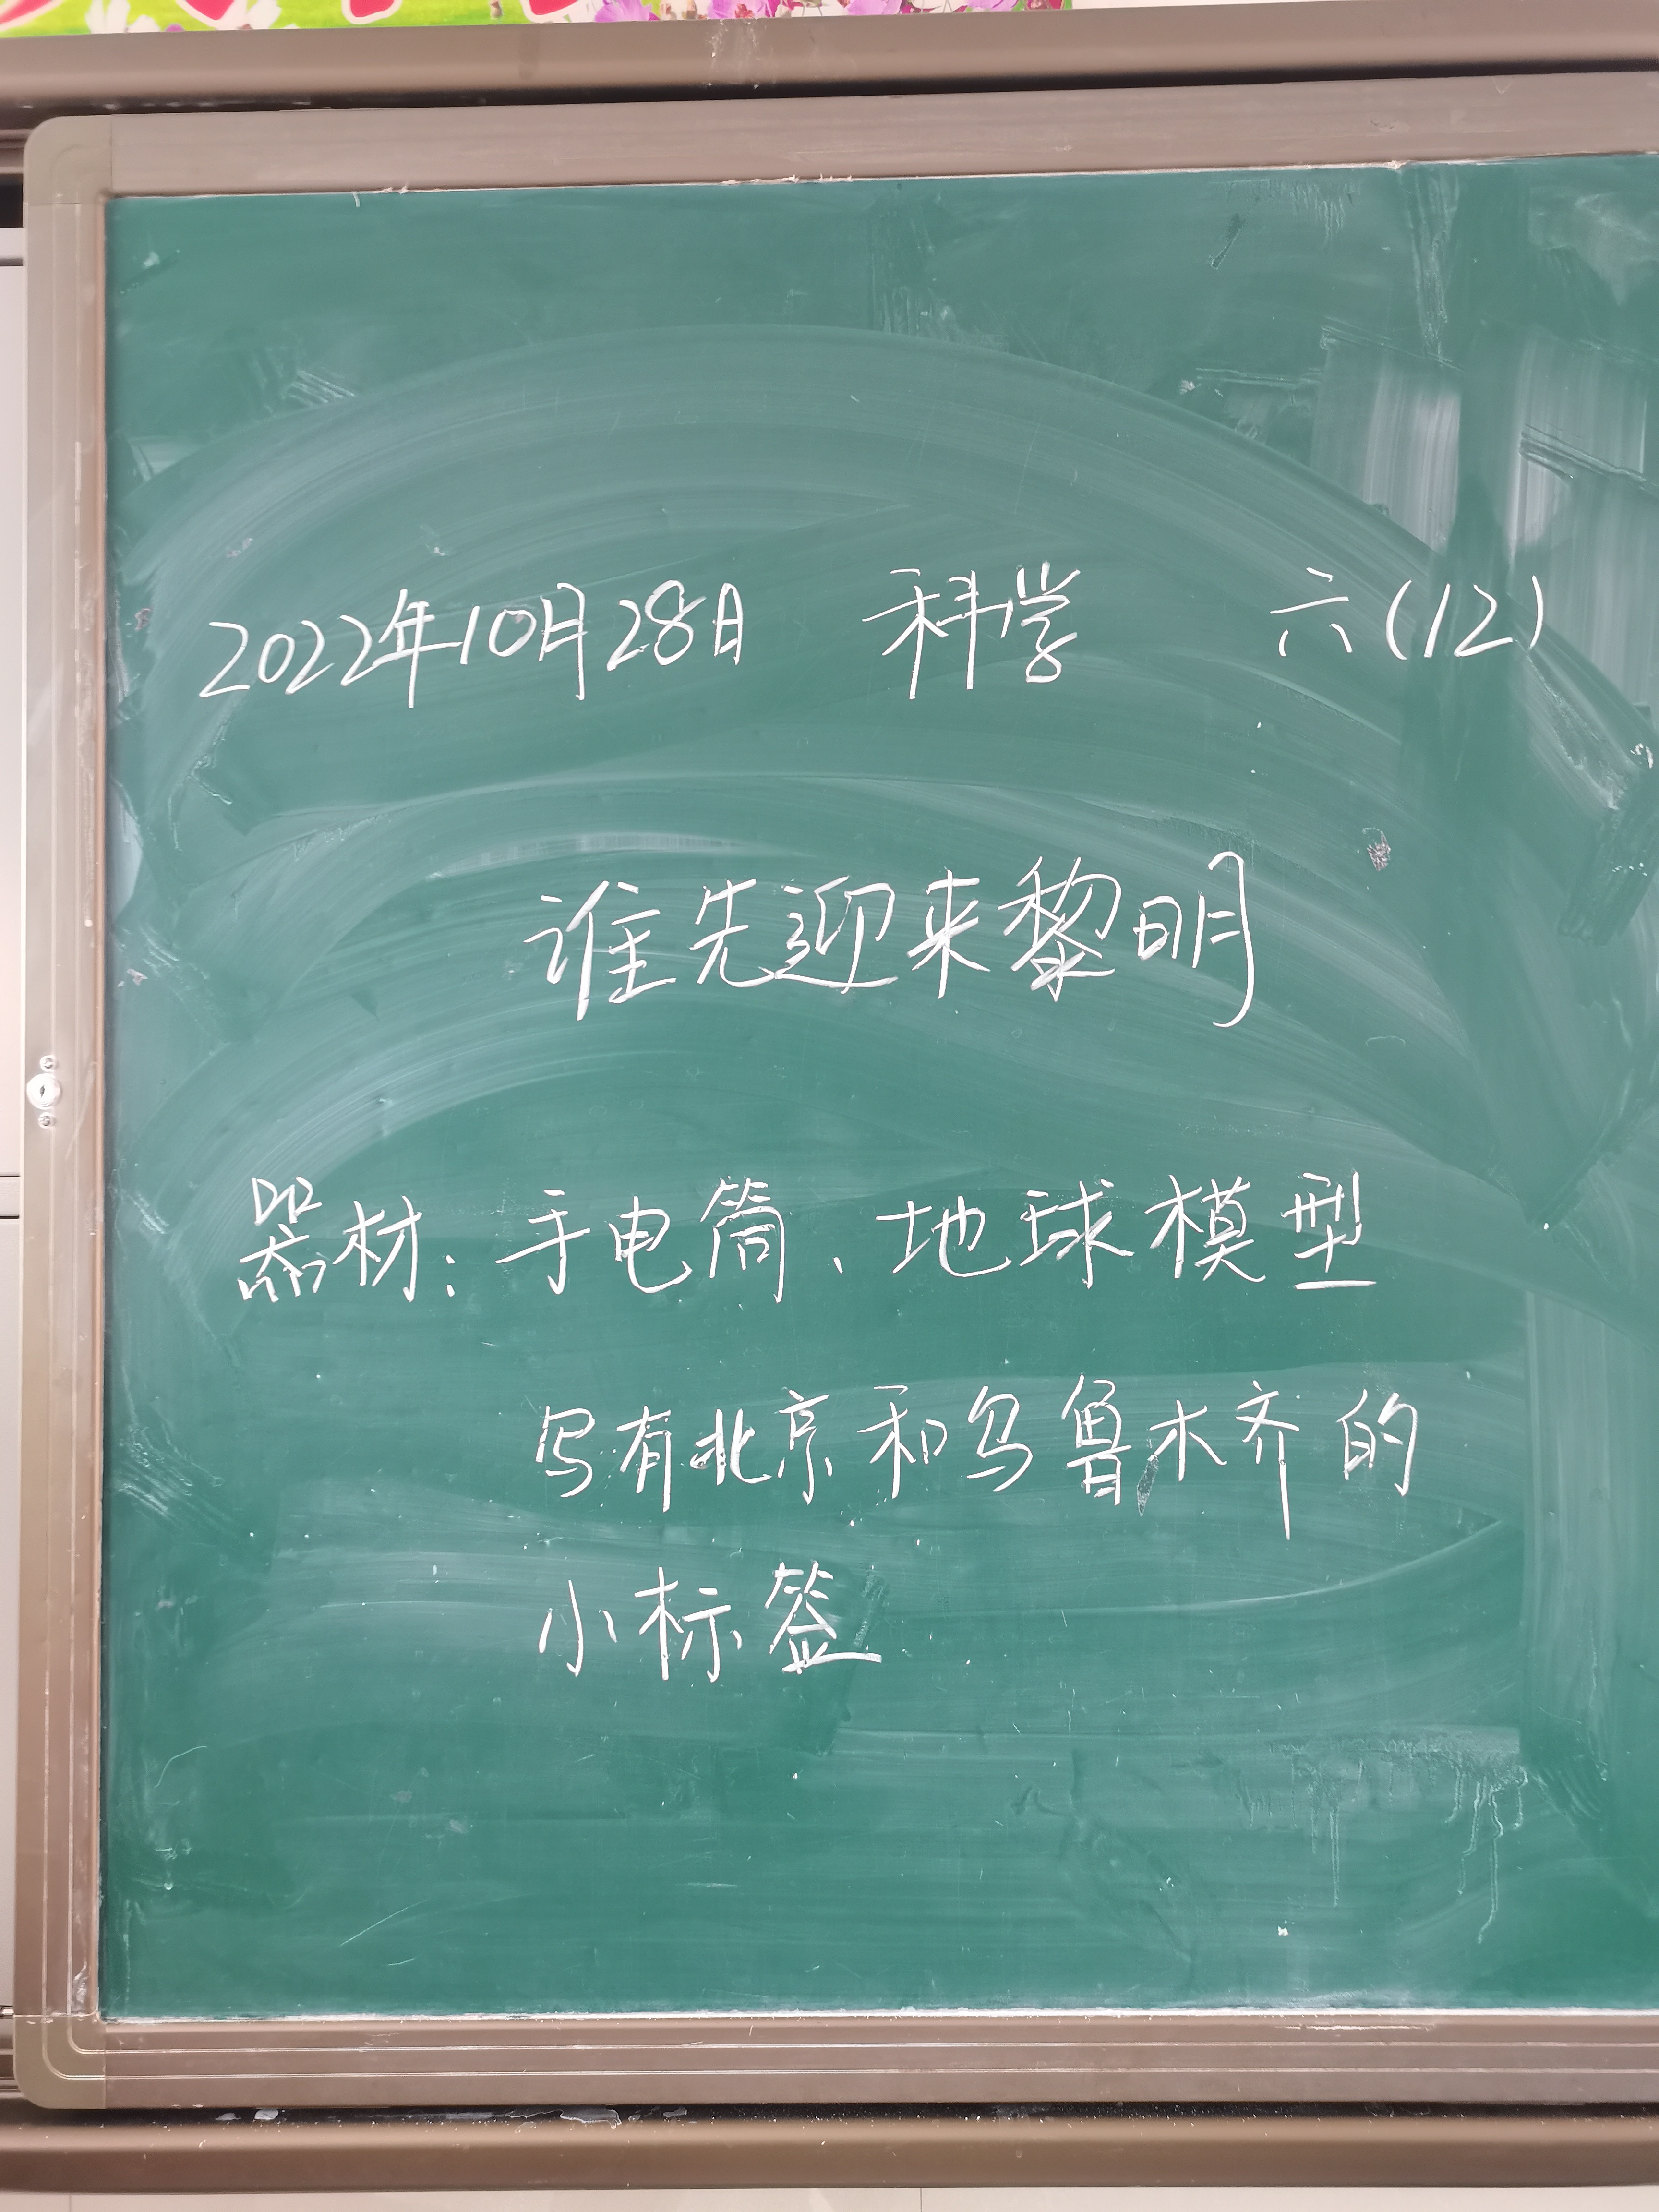 2022年10月28日 科学 六(12)
谁先迎来黎明
器材：手电筒、地球模型
写有北京和乌鲁木齐的
小标签